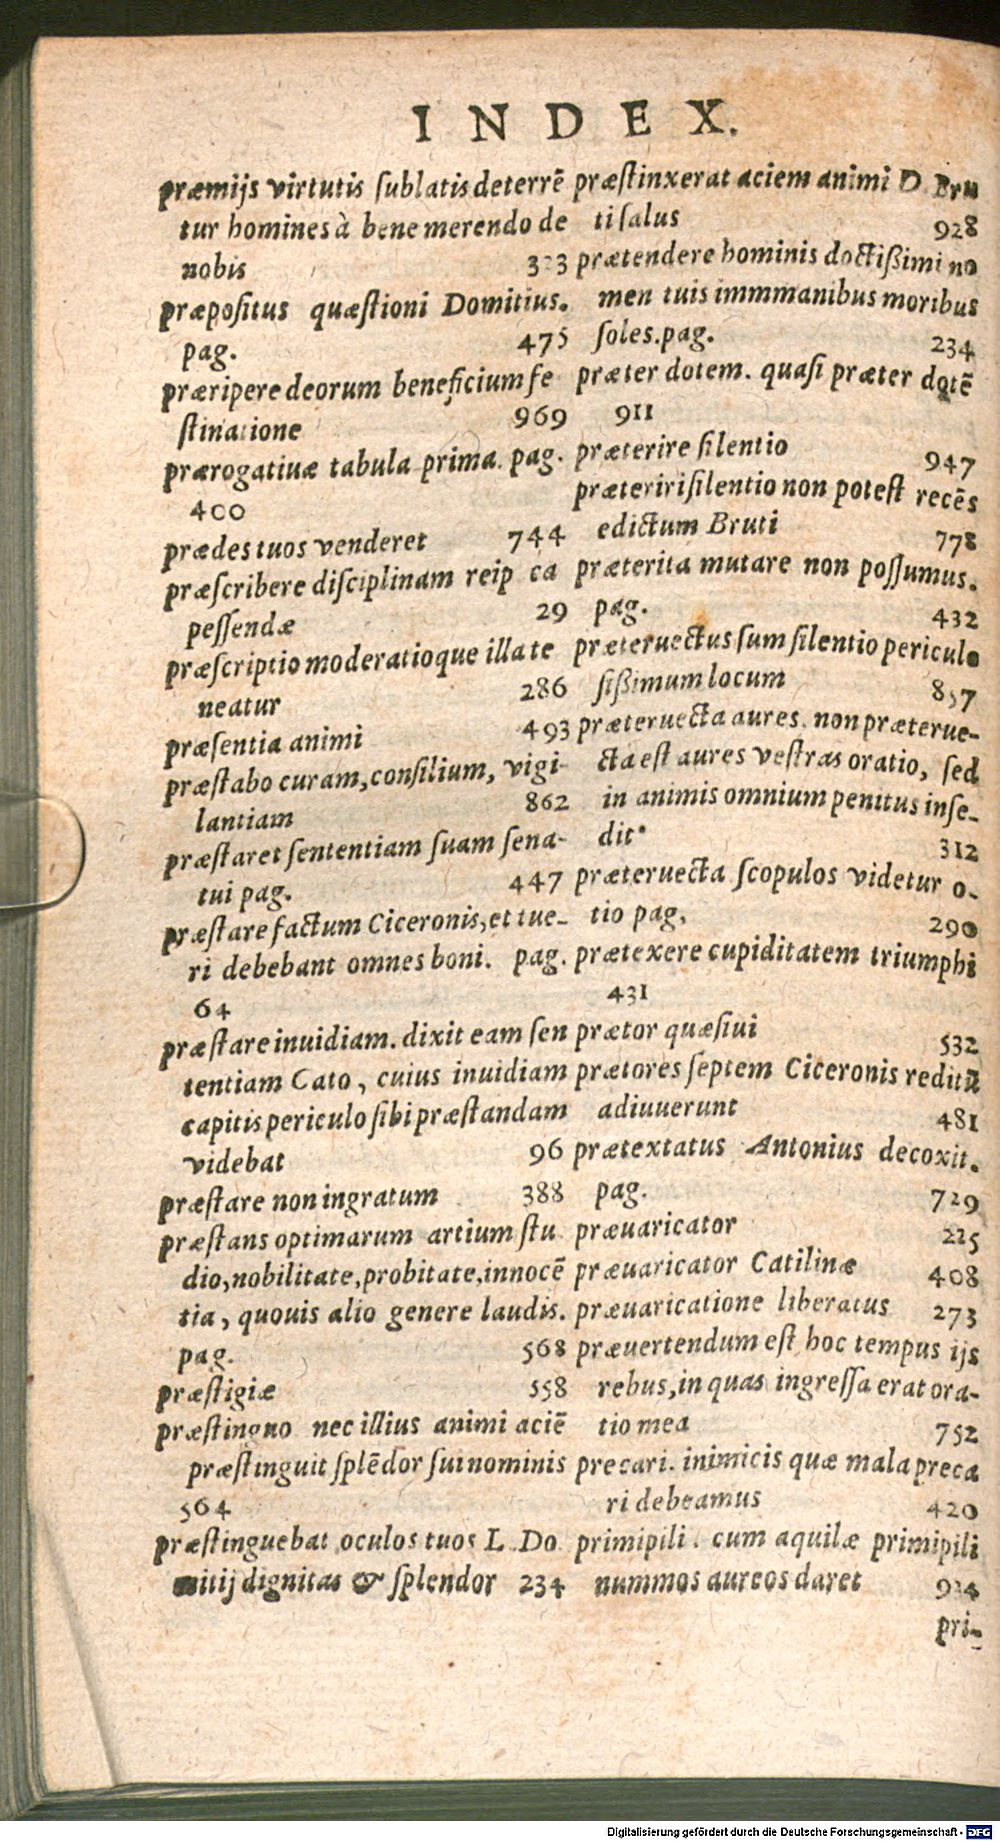 INDEX.
præmijs virtutis ſublatis deterrē
tur homines à bene merendo de
nobis 323
præpoſitus quæſtioni Domitius.
pag. 475
præripere deorum beneficium fe
ſtinatione 969
prærogatiuæ tabula prima. pag.
400
prædes tuos venderet 744
præſcribere diſciplinam reip ca
peſſendæ 29
præſcriptio moderatioque illa te
neatur 286
præſentia animi 493
præſtabo curam, conſilium, vigi-
lantiam 862
præſtaret ſententiam ſuam ſena-
tui pag. 447
præſtare factum Ciceronis, et tue-
ri debebant omnes boni. pag.
64
præſtare inuidiam. dixit eam ſen
tentiam Cato, cuius inuidiam
capitis periculo ſibi præſtandam
videbat 96
præſtare non ingratum 388
præſtans optimarum artium ſtu
dio, nobilitate, probitate, innocē
tia, quouis alio genere laudis.
pag. 568
præſtigiæ 558
præſtinguo nec illius animi aciē
præſtinguit ſplēdor ſui nominis
564
præſtinguebat oculos tuos L. Do
mitij dignitas & ſplendor 234
præſtinxerat aciem animi D. Bru
ti ſalus 928
prætendere hominis doctißimi no
men tuis immmanibus moribus
ſoles. pag. 234
præter dotem. quaſi præter dotē
911
præterire ſilentio 947
præteriri ſilentio non poteſt recēs
edictum Bruti 778
præterita mutare non poſſumus.
pag. 432
præteruectus ſum ſilentio periculo
ſißimum locum 857
præteruecta aures. non præterue-
cta eſt aures veſtras oratio, ſed
in animis omnium penitus inſe-
dit. 312
præteruecta ſcopulos videtur o-
tio pag. 290
prætexere cupiditatem triumphi
431
prætor quæſiui 532
prætores ſeptem Ciceronis reditū
adiuuerunt 481
prætextatus Antonius decoxit.
pag. 729
præuaricator 225
præuaricator Catilinæ 408
præuaricatione liberatus 273
præuertendum eſt hoc tempus ijs
rebus, in quas ingreſſa erat ora-
tio mea 752
precari. inimicis quæ mala preca
ri debeamus 420
primipili. cum aquilæ primipili
nummos aureos daret 924
pri-
Digitalisierung gefördert durch die Deutsche Forschungsgemeinschaft - DFG